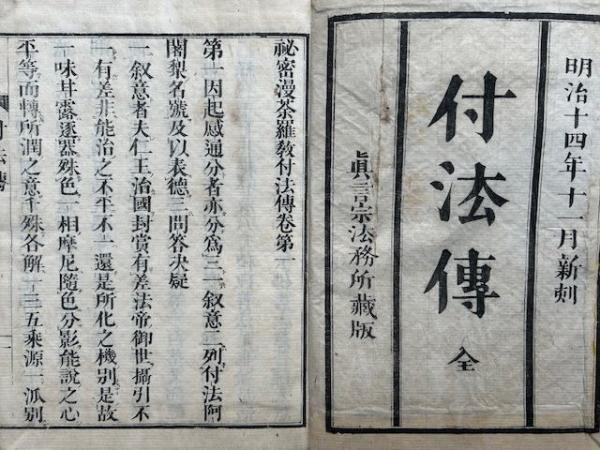 明治十四年十一月新刻
付法傳 全
眞言宗法務所藏版
祕密漫荼羅敎付法傳卷第一
第一因起感通分者亦分爲三一叙意二列付法阿
闍棃名號及以表德三問答決疑
一叙意者夫仁王治國封賞有差法帝御世攝引不
一有差非能治之不平不一還是所化之機別是故
一味甘露逐器殊色一相摩尼隨色分影能說之心
平等而轉所潤之意千殊各解一三五乘源一派別